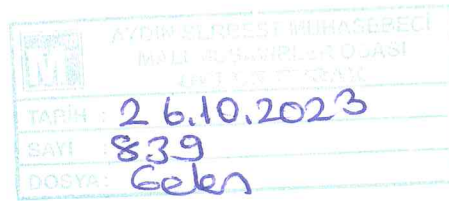 AYDIN SERBEST MUHASEBECİ
MALİ MÜŞAVİRLER ODASI
TARİH : 26.10.2023
SAYI : 839
DOSYA: Gelen